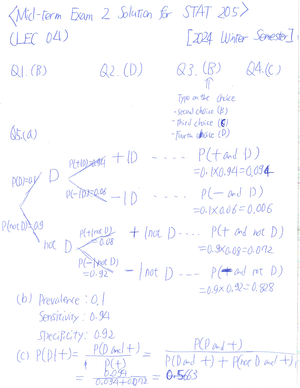 <Mid-term Exam 2 Solution for STAT 205>
(LEC 04) [2024 Winter Semester]
Q1. (B) Q2. (D) Q3. (B) Q4. (C)
Typo on the choice
- second choice (B)
- third choice (C)
- Fourth choice (D)
Q5. (a)
P(+|D)=0.94 +|D ---- P(+ and D)
P(D)=0.1 D =0.1×0.94=0.094
P(-|D)=0.06 -|D ---- P(- and D)
=0.1×0.06=0.006
P(not D)=0.9 P(+|not D)=0.08 +|not D ---- P(+ and not D)
not D =0.9×0.08=0.072
P(-|not D)=0.92 -|not D ---- P(- and not D)
=0.9×0.92=0.828
(b) Prevalence : 0.1
Sensitivity : 0.94
Specificity : 0.92
(c) P(D|+) = P(D and +) / P(+) = P(D and +) / P(D and +) + P(not D and +)
= 0.094 / 0.094+0.072 = 0.5663